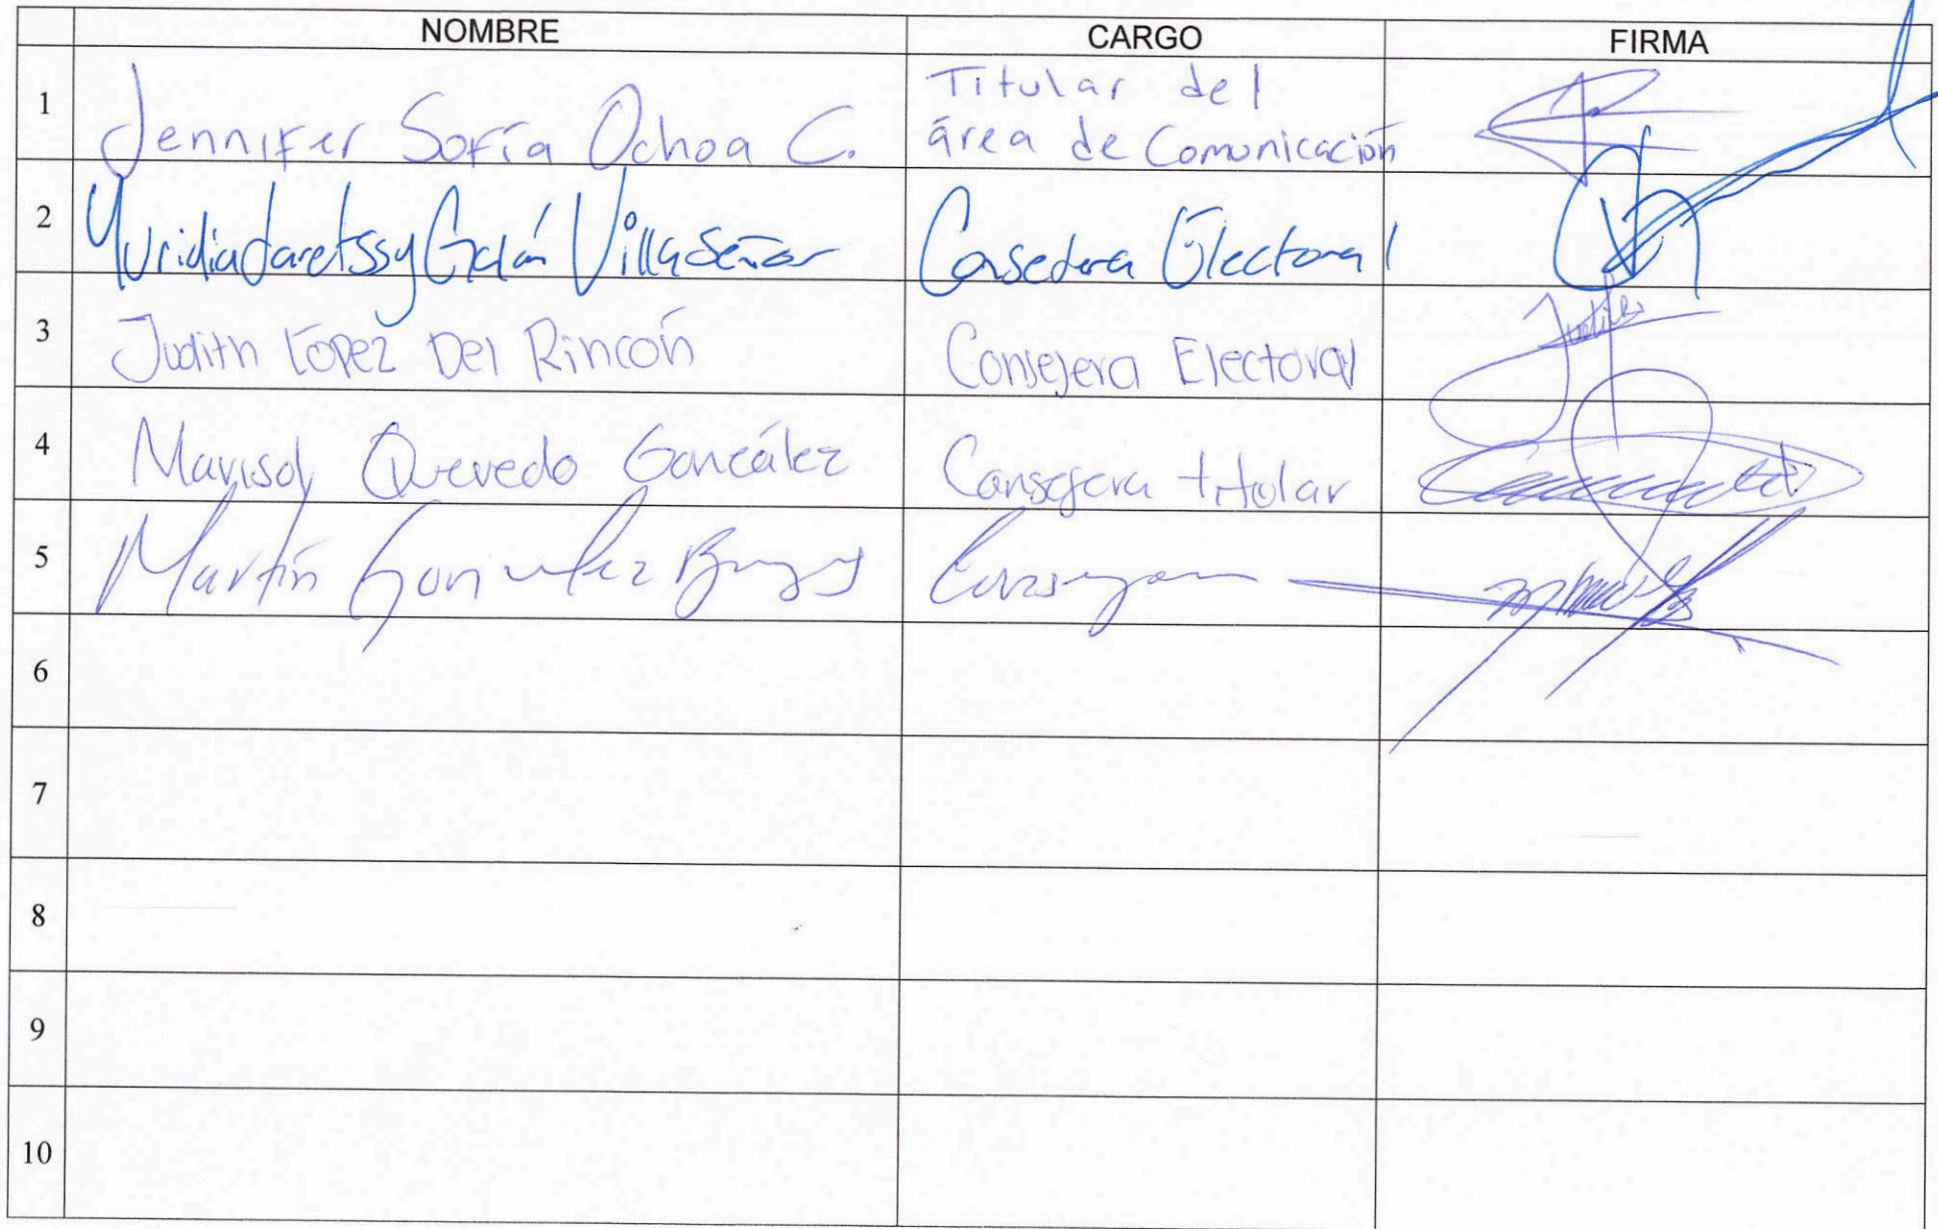 NOMBRE CARGO FIRMA
1 Jennifer Sofía Ochoa C. Titular del
área de Comunicación
2 Yuridia Jaretssy Galán Villaseñor Consejera Electoral
3 Judith López Del Rincón Consejera Electoral
4 Marisol Quevedo González Consejera titular
5 Martín González
6
7
8
9
10